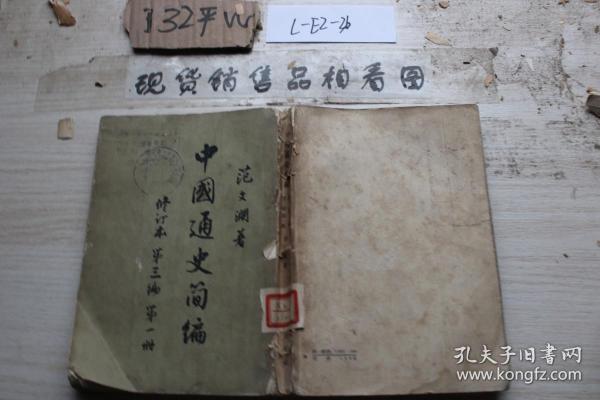 132平W
L-E2-26
现货销售品相看图
范文澜著
中國通史简编
修订本 第三编 第一册
孔夫子旧书网
www.kongfz.com